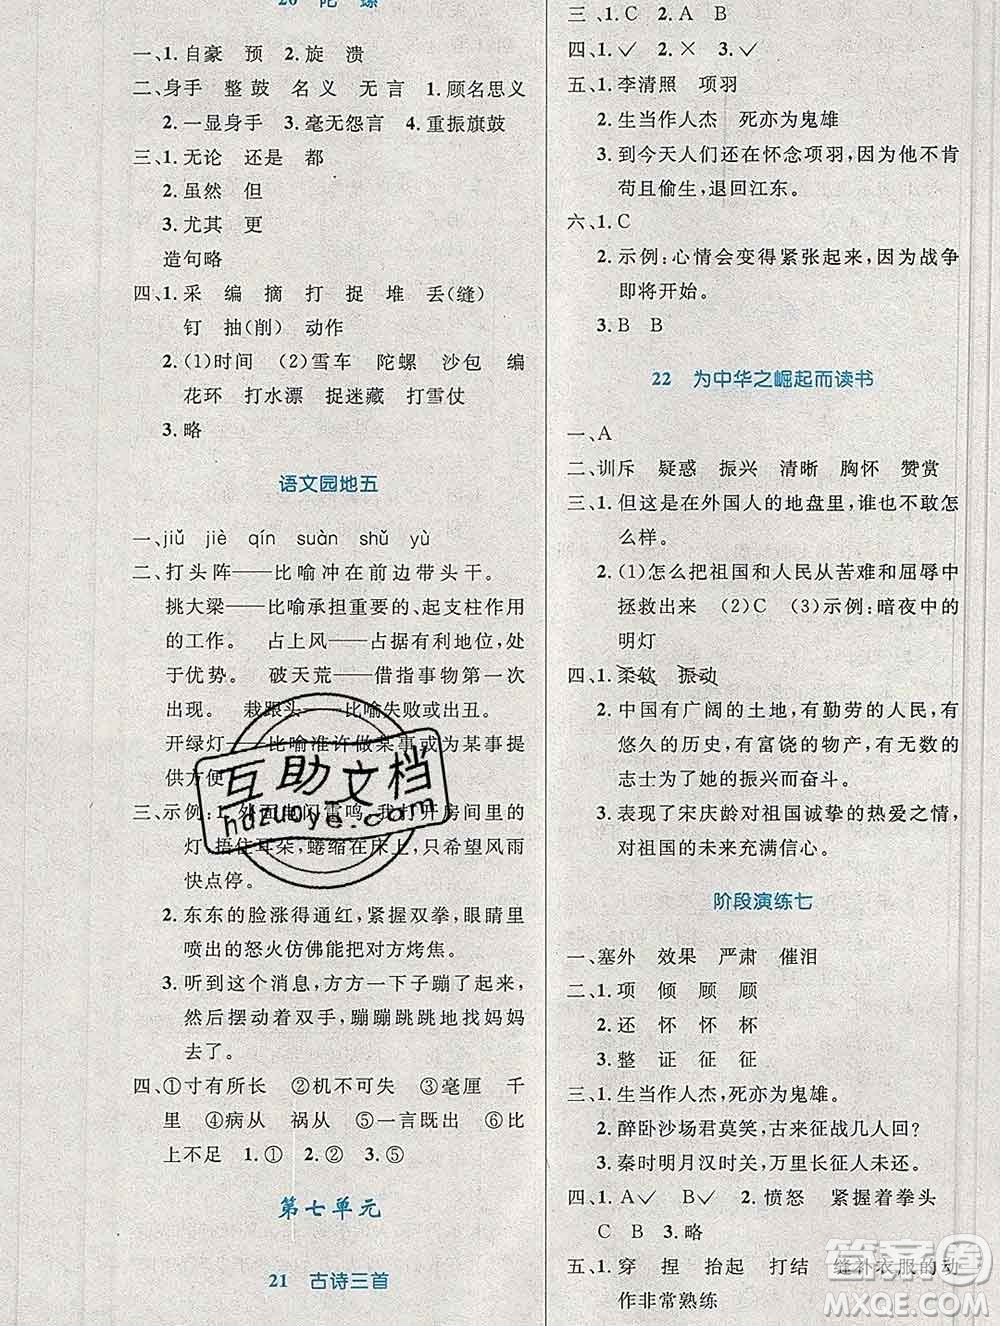 20 陀 螺
一、1. 自豪 预 2. 旋 溃
二、身手 整鼓 名义 无言 1. 顾名思义
2. 一显身手 3. 毫无怨言 4. 重振旗鼓
三、1. 无论 还是 都
2. 虽然 但
3. 尤其 更
造句略
四、1. 采 编 摘 打 捉 堆 丢(缝)
钉 抽(削) 动作
2. (1)时间 (2)雪车 陀螺 沙包 编
花环 打水漂 捉迷藏 打雪仗
3. 略
语文园地五
一、jiǔ jiè qín suàn shǔ yù
二、打头阵——比喻冲在前边带头干。
挑大梁——比喻承担重要的、起支柱作用
的工作。 占上风——占据有利地位,处
于优势。 破天荒——借指事物第一次
出现。 栽跟头——比喻失败或出丑。
开绿灯——比喻准许做某事或为某事提
供方便
三、示例:1. 外面电闪雷鸣,我打开房间里的
灯,捂住耳朵,蜷缩在床上,只希望风雨
快点停。
2. 东东的脸涨得通红,紧握双拳,眼睛里
喷出的怒火仿佛能把对方烤焦。
3. 听到这个消息,方方一下子蹦了起来,
然后摆动着双手,蹦蹦跳跳地去找妈妈
去了。
四、①寸有所长 ②机不可失 ③毫厘 千
里 ④病从 祸从 ⑤一言既出 ⑥比
上不足 1. ① 2. ③ 3. ⑤
第七单元
21 古诗三首
三、1. C 2. A B
四、1. ✓ 2. × 3. ✓
五、1. 李清照 项羽
2. 生当作人杰 死亦为鬼雄
3. 到今天人们还在怀念项羽,因为他不肯
苟且偷生,退回江东。
六、1. C
2. 示例:心情会变得紧张起来,因为战争
即将开始。
3. B B
22 为中华之崛起而读书
一、A
二、训斥 疑惑 振兴 清晰 胸怀 赞赏
三、1. 但这是在外国人的地盘里,谁也不敢怎
么样。
2. (1)怎么把祖国和人民从苦难和屈辱中
拯救出来 (2)C (3)示例:暗夜中的
明灯
四、1. 柔软 振动
2. 中国有广阔的土地,有勤劳的人民,有
悠久的历史,有富饶的物产,有无数的
志士为了她的振兴而奋斗。
3. 表现了宋庆龄对祖国诚挚的热爱之情,
对祖国的未来充满信心。
阶段演练七
一、塞外 效果 严肃 催泪
二、1. 项 倾 顾 顾
2. 还 怀 怀 杯
3. 整 证 征 征
三、1. 生当作人杰,死亦为鬼雄。
2. 醉卧沙场君莫笑,古来征战几人回?
3. 秦时明月汉时关,万里长征人未还。
四、1. A✓ B✓ 2. 愤怒 紧握着拳头
C B 3. 略
五、1. 穿 捏 抬起 打结 缝补衣服的动
作非常熟练
互助文档
hdzuoye.com
答案圈
MXQE.COM